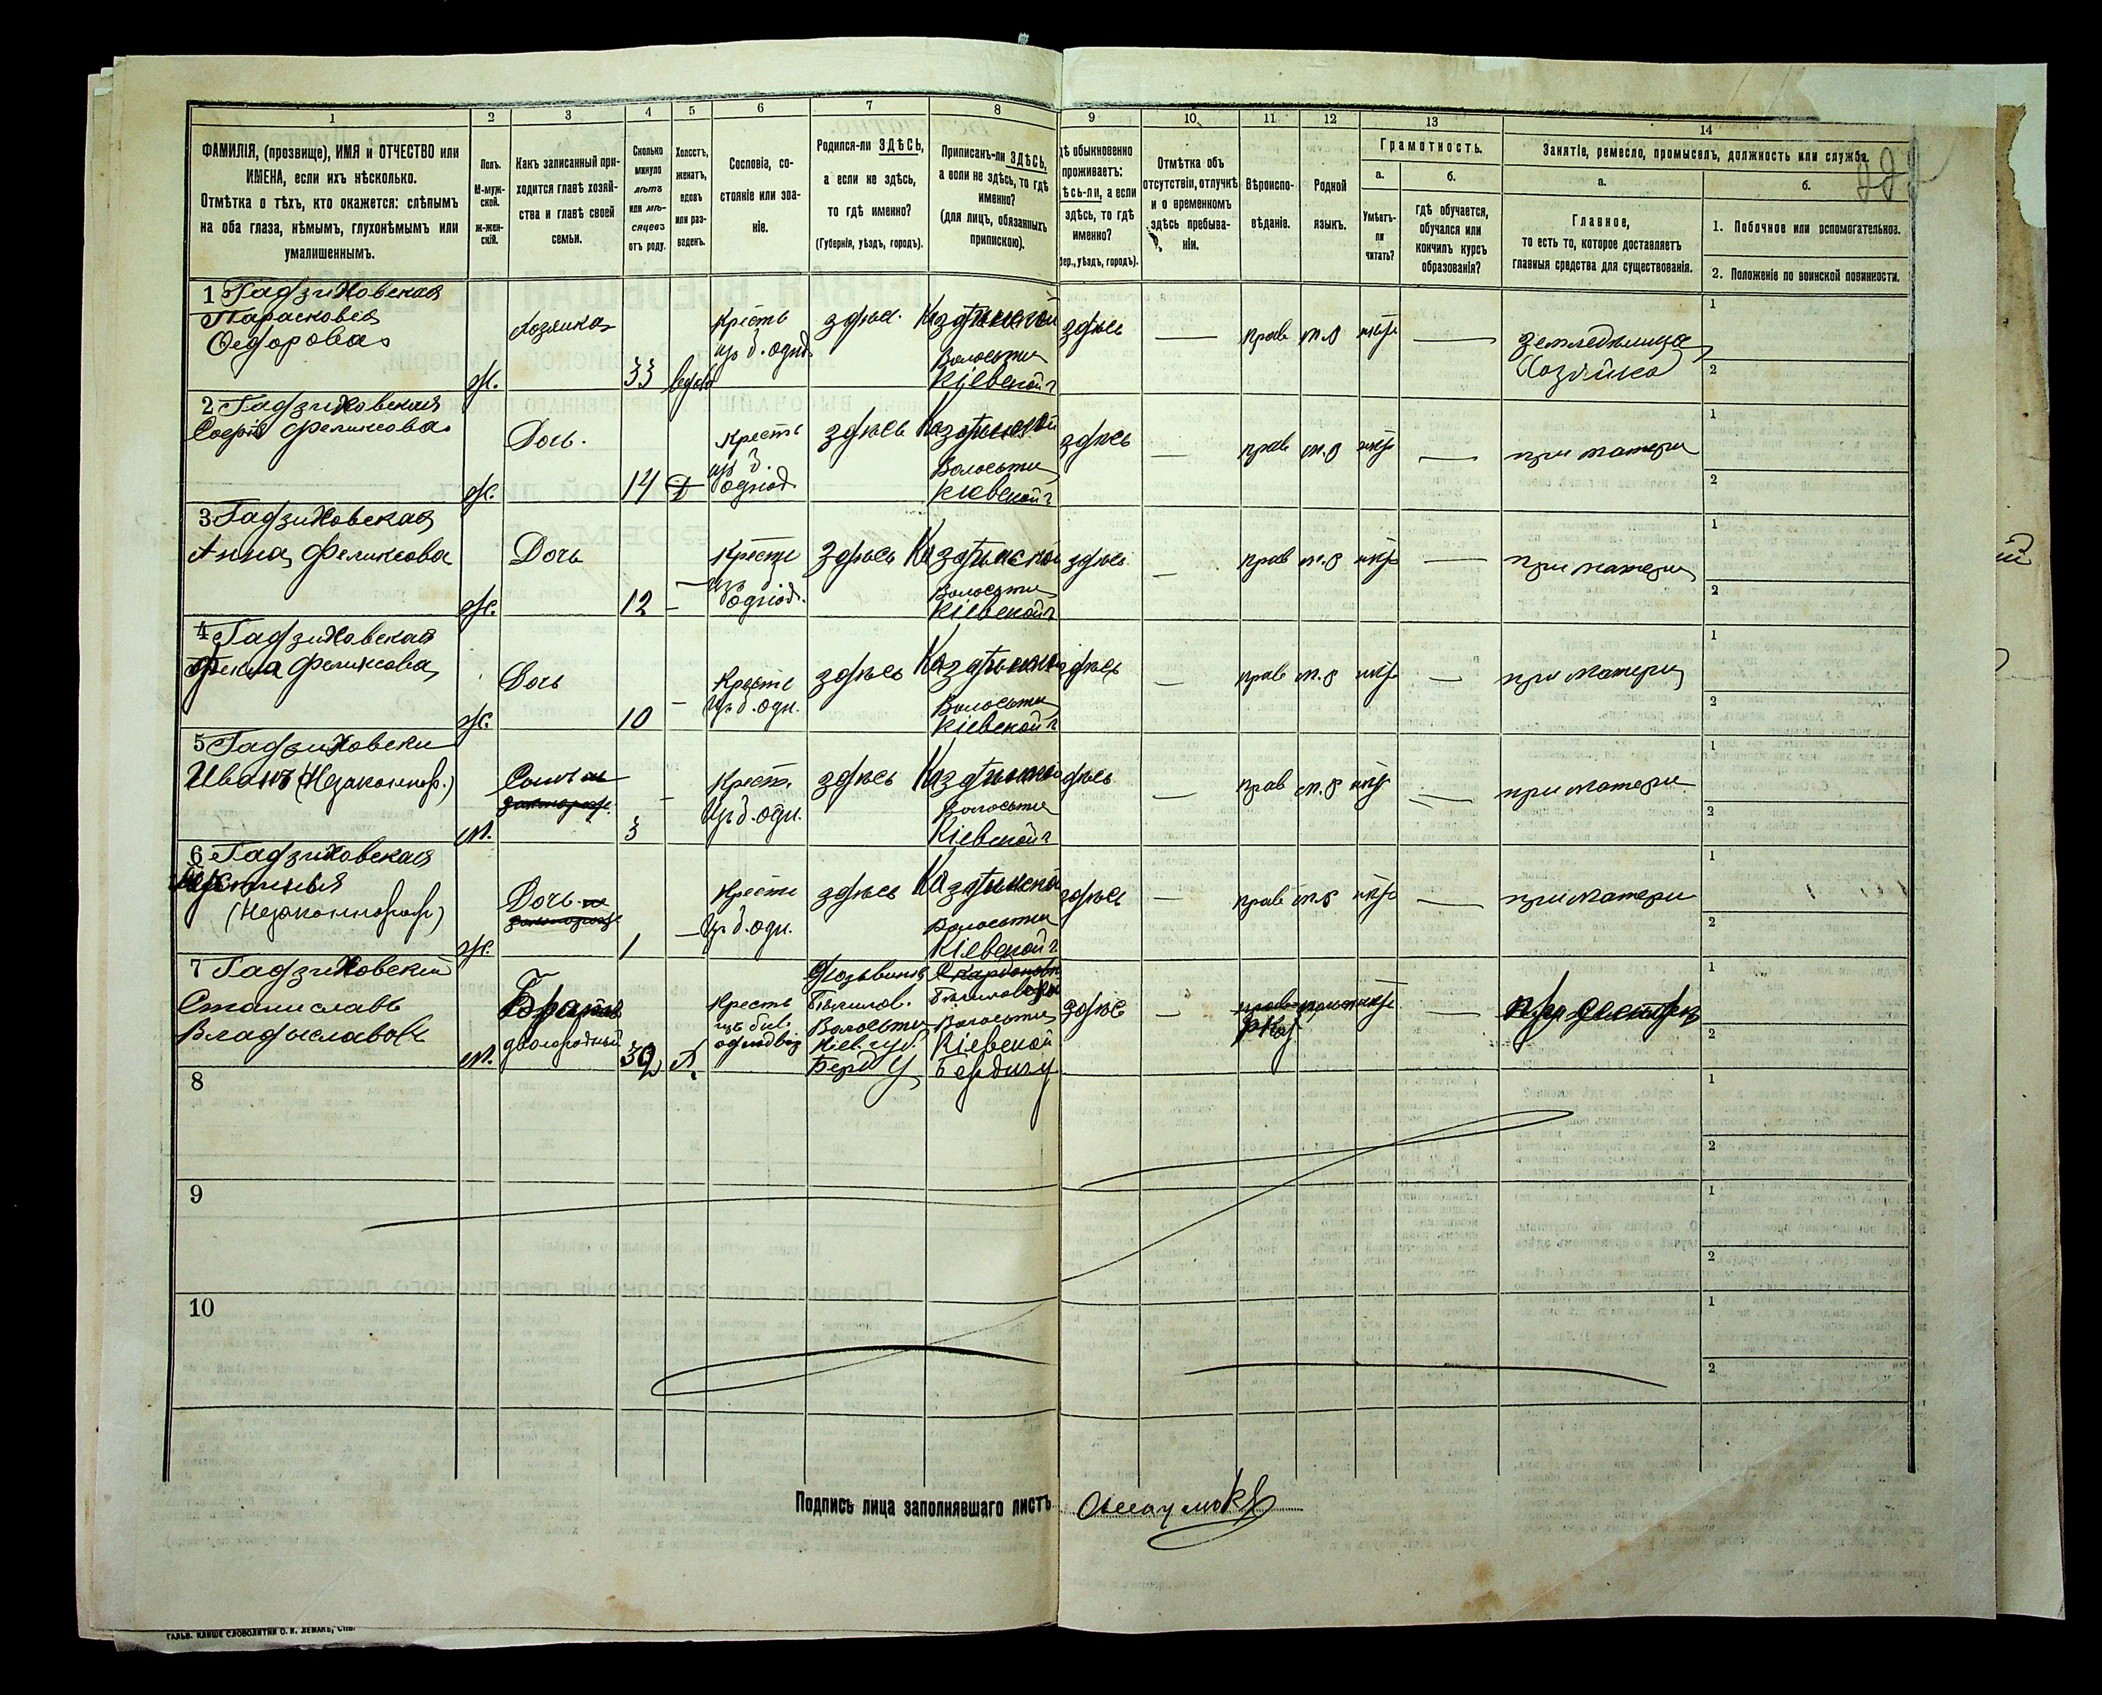 1
2
3
4
5
6
7
8
9
10
11
12
13
14
ФАМИЛІЯ, (прозвище), ИМЯ и ОТЧЕСТВО или
ИМЕНА, если ихъ нѣсколько.
Отмѣтка о тѣхъ, кто окажется: слѣпымъ
на оба глаза, нѣмымъ, глухонѣмымъ или
умалишеннымъ.
Полъ.
М-муж-
ской.
Ж-жен-
скій.
Какъ записанный при-
ходится главѣ хозяй-
ства и главѣ своей
семьи.
Сколько
минуло
лѣтъ
или мѣ-
сяцевъ
отъ роду.
Холостъ,
женатъ,
вдовъ
или раз-
веденъ.
Сословіе, со-
стояніе или зва-
ніе.
Родился-ли ЗДѢСЬ,
а если не здѣсь,
то гдѣ именно?
(Губернія, уѣздъ, городъ).
Приписанъ-ли ЗДѢСЬ,
а если не здѣсь, то гдѣ
именно?
(для лицъ, обязанныхъ
припискою).
обыкновенно
проживаетъ:
а если
здѣсь, то гдѣ
именно?
уѣздъ, городъ).
Отмѣтка объ
отсутствіи, отлучкѣ
и о временномъ
здѣсь пребыва-
ніи.
Вѣроиспо-
вѣданіе.
Родной
языкъ.
Грамотность.
а.
Умѣетъ-
ли
читать?
б.
гдѣ обучается,
обучался или
кончилъ курсъ
образованія?
Занятіе, ремесло, промыселъ, должность или служба.
а.
Главное,
то есть то, которое доставляетъ
главныя средства для существованія.
б.
1. Побочное или вспомогательное.
2. Положеніе по воинской повинности.
1 Гадзиховская
Парасковея
Федорова
ж.
Хозяйка
33
вдова
Крестъ
изъ б. однод
здѣсь
Волости
Кіевской г
здѣсь
—
прав
м.р
нѣтъ
—
земледѣлица
(Хозяйка)
1
2
2 Гадзиховская
Софія Феликсова
ж.
Дочь.
14
Крестъ
изъ б.
однод.
здѣсь
Волости
Кіевской г
здѣсь
—
прав
м.р
нѣтъ
—
при матери
1
2
3 Гадзиховская
Анна Феликсова
ж.
Дочь
12
—
Крестъ
изъ б.
однод.
здѣсь
Волости
Кіевской г
здѣсь
—
прав
м.р
нѣтъ
—
при матери
1
2
4 Гадзиховская
Фекла Феликсова
ж.
Дочь
10
—
Крестъ
изъ б. одн.
здѣсь
Волости
Кіевской г
здѣсь
—
прав
м.р
нѣтъ
—
при матери
1
2
5 Гадзиховски
Иванъ (Незаконнор.)
м.
Сынъ
3
—
Крест.
изъ б. одн.
здѣсь
Волости
Кіевской г
здѣсь
—
прав
м.р
нѣтъ
—
при матери
1
2
6 Гадзиховская
(Незаконнорож)
ж.
Дочь
1
—
Крестъ
изъ б. одн.
здѣсь
Волости
Кіевской г
здѣсь
—
прав
м.р
нѣтъ
—
при матери
1
2
7 Гадзиховскій
Станиславъ
Владыславовъ
м.
Братъ
двоюродный
Крестъ
изъ бив.
Бѣлилов.
Волости
Кіев. губ.
Берд У
Волости
Кіевской
Бердич у
здѣсь
—
нѣтъ
—
1
2
8
1
2
9
1
2
10
1
2
Подпись лица заполнявшаго листъ
ГАЛЬВ. КЛИШЕ СЛОВОЛИТНИ О. И. ЛЕМАНЪ, СПБ.